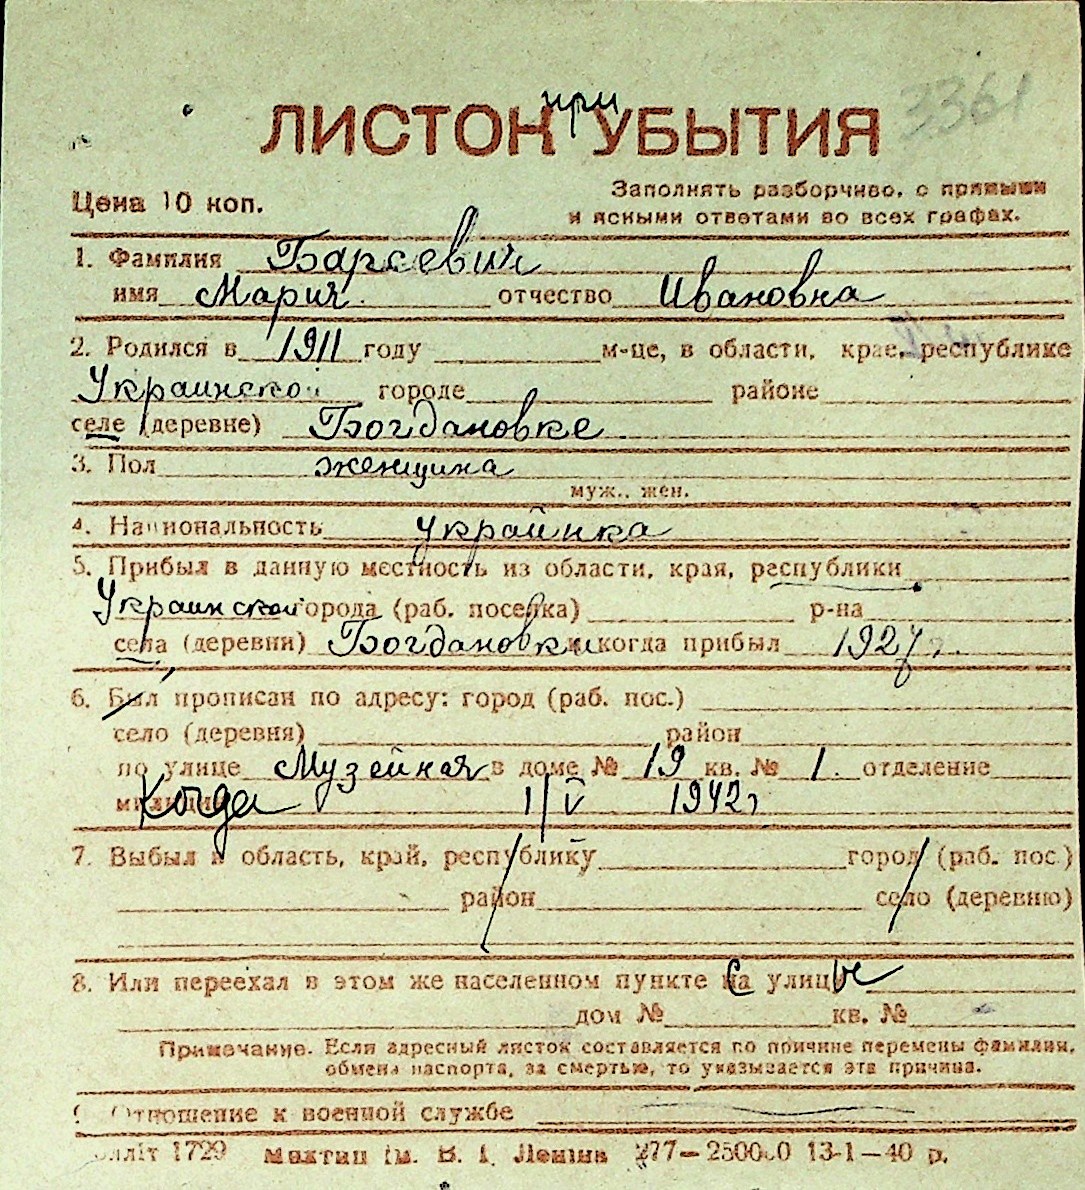 3361
при
ЛИСТОК УБЫТИЯ
Цена 10 коп.
Заполнять разборчиво, с прямыми
и ясными ответами во всех графах.
1. Фамилия Барсевич
имя Мария отчество Ивановна
2. Родился в 1911 году м-це, в области, крае, республике
Украинской городе районе
селе (деревне) Богдановке
3. Пол женщина
муж., жен.
4. Национальность украинка
5. Прибыл в данную местность из области, края, республики
Украинской города (раб. поселка) р-на
села (деревни) Богдановки когда прибыл 1927 г.
6. Был прописан по адресу: город (раб. пос.)
село (деревня) район
по улице Музейная в доме № 19 кв. № 1. отделение
милиции Когда 1/V 1942 г
7. Выбыл в область, край, республику город (раб. пос.)
район село (деревню)
8. Или переехал в этом же населенном пункте на С улицы
дом № кв. №
Примечание. Если адресный листок составляется по причине перемены фамилии,
обмена паспорта, за смертью, то указывается эта причина.
9. Отношение к военной службе
1729 им. В. І. Леніна 277—250000 13-1—40 р.